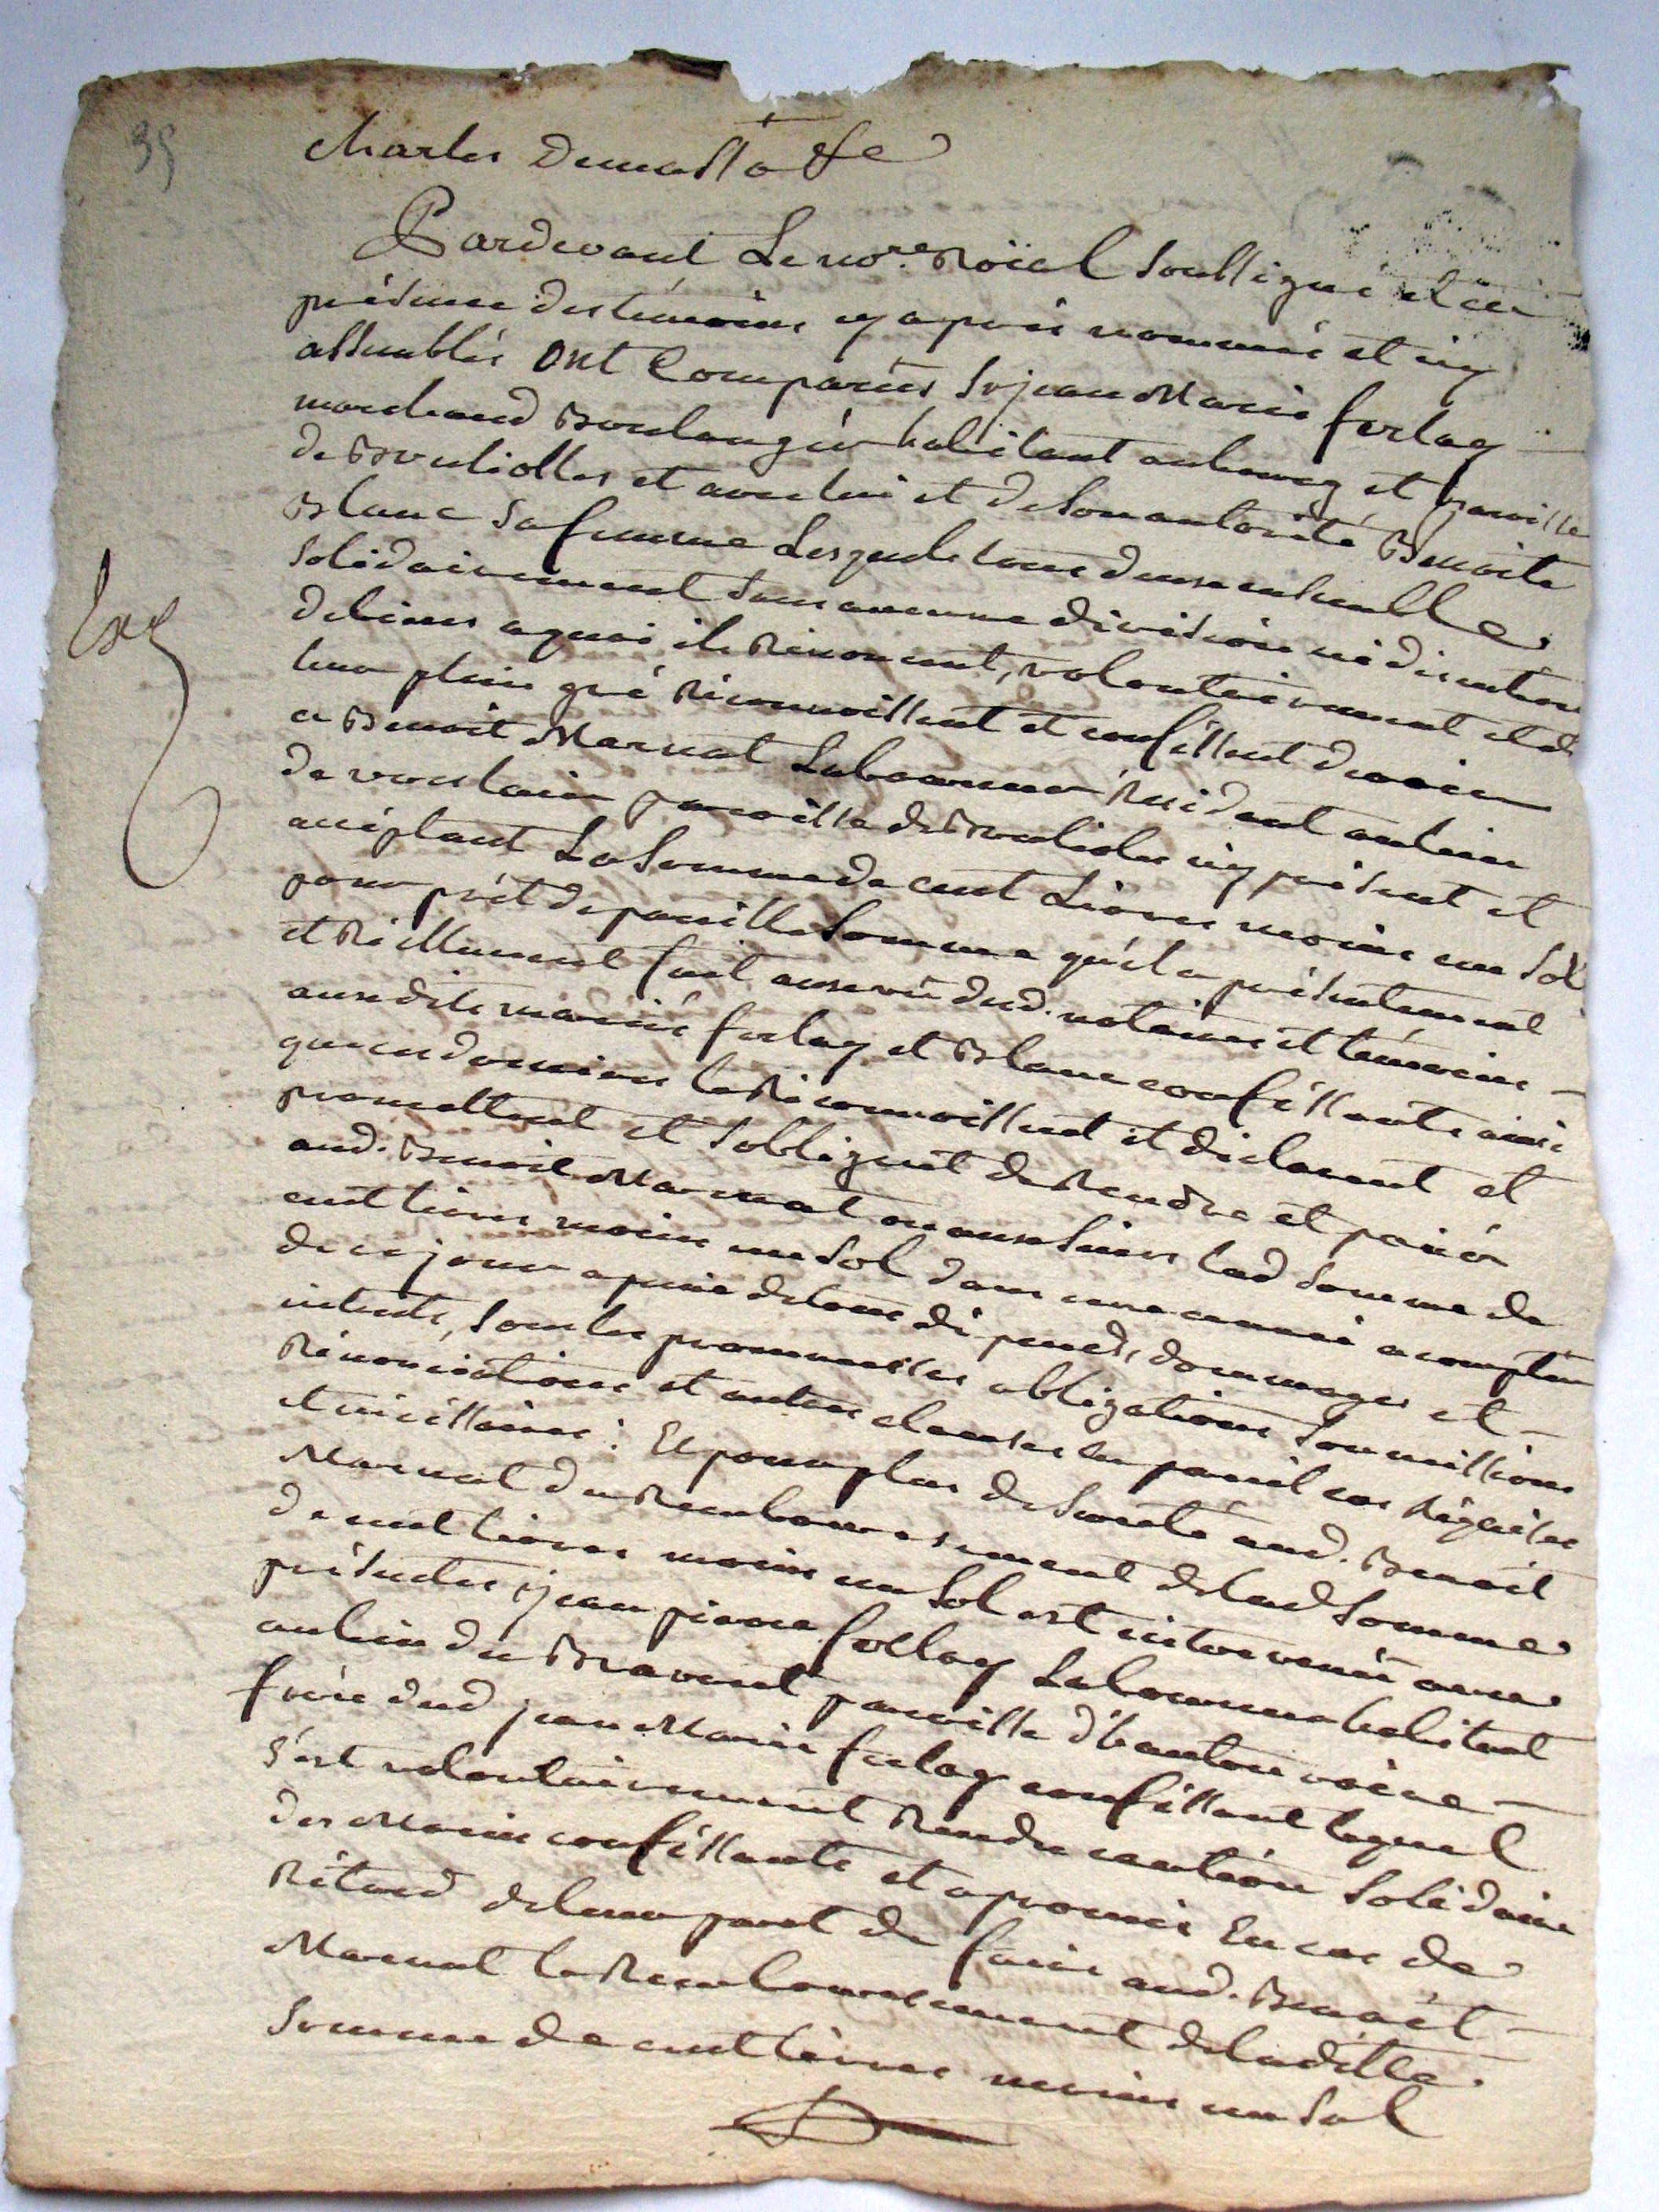 35
Charles Demasso &c
Pardevant Le nore. Roïal soussigné et en
présence des témoins cy après nommés et icy
assemblés ont Comparûs Sr jean Marie ferlay
marchand Boulangér habitant au bourg et paroisse
de Brulioles et avec lui et de son autorité Benoite
Blanc sa femme Lesquels tous deux ensemble
solidairement sans aucune division ni discution
de biens a quoi ils Rénoncent, volontairement et de
leur plein gré Réconnoissent et confessent devoir
a Benoit Marnat Laboureur Résidant au lieu
de paroisse de Brulioles icy présent et
acceptant La Somme de cent Livres moins un sol
pour prêt de pareille Somme qu'il a présentement
et Réellement fait aux vû dud. notaire et témoins
auxdits mariés ferlay et Blanc confessants ainsi
que ces derniers le Réconnoissent et déclarent et
promettent et s'obligent de Rendre et paiér
aud. Benoit Marnat ou aux siens lad somme de
cent livres moins un sol dans une année a compter
de ce jour a peine de tous dépends, dommages et
intérêts, sous les promesses obligations soumissions
Rénonciations et autres clauses en pareil cas Réquises
et nécéssaires : Et pour plus de sureté aud. Benoit
Marnat du Remboursement de lad Somme
de cent livres moins un sol est intervenû aux
présentes, jean pierre ferlay Laboureur habitant
au lieu du Bravent paroisse d'hauterivoire
frère dud jean Marie ferlay confessant lequel
s'est volontairement Rendu caution Solidaire
des Mariés confessants et a promis En cas de
Rétard de leur part de faire aud. Benoit
Marnat le Remboursement de laditte
Somme de cent livres moins un sol